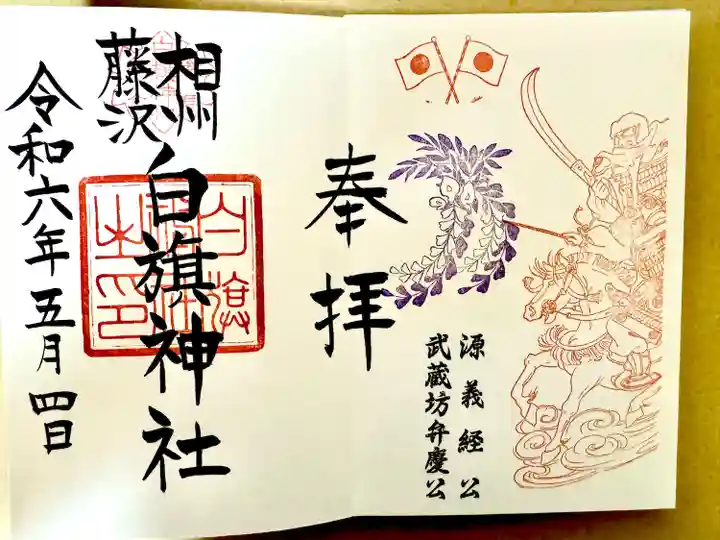 源義経公
武蔵坊弁慶公
奉拝
相州
藤沢
白旗神社
白旗神社之印
令和六年五月四日